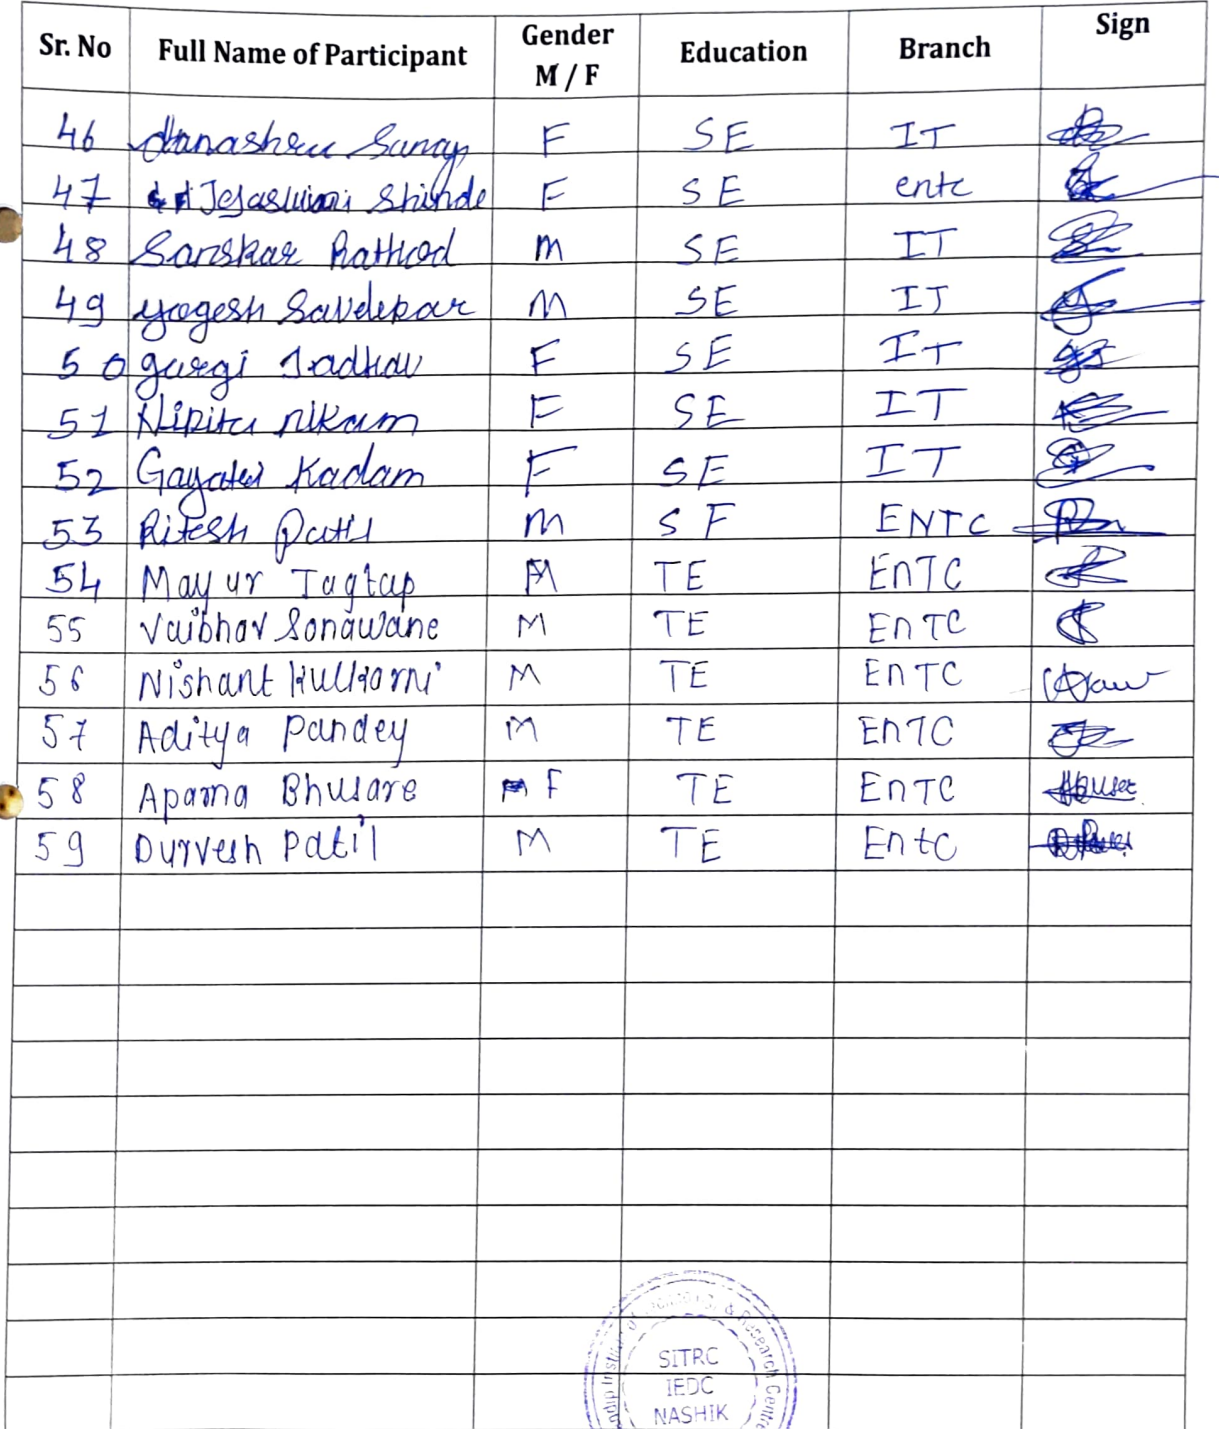 Sr. No Full Name of Participant Gender M / F Education Branch Sign
46 Sanap F SE IT
47 Tejaswini Shinde F SE entc
48 Sanskar Rathod M SE IT
49 Yogesh M SE IT
50 gargi Jadhav F SE IT
51 Nikam F SE IT
52 Gayatri Kadam F SE IT
53 Ritesh Patil M SF ENTC
54 Mayur Jagtap M TE EnTC
55 Vaibhav Sonawane M TE EnTC
56 Nishant Kulkarni M TE EnTC
57 Aditya Pandey M TE EnTC
58 Aparna Bhusare F TE EnTC
59 Durvesh Patil M TE Entc
& Research Centre
SITRC
IEDC
NASHIK